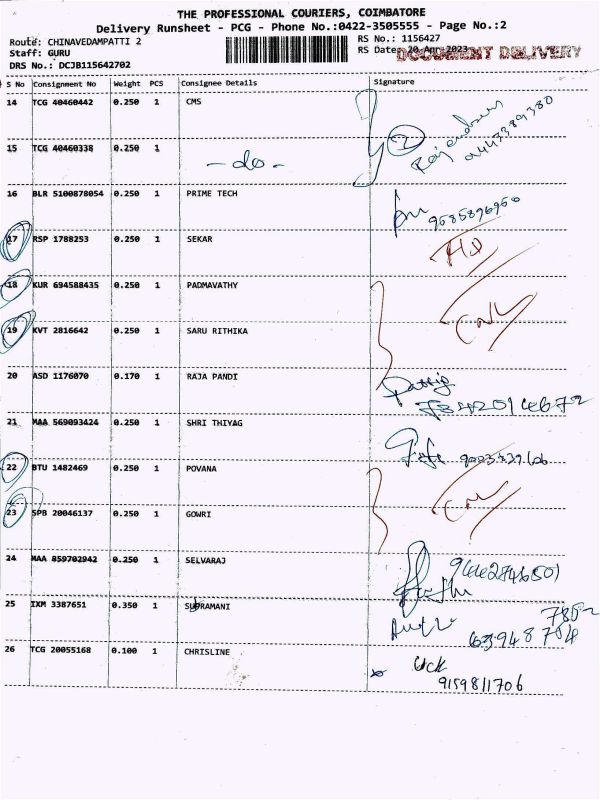 THE PROFESSIONAL COURIERS, COIMBATORE
Delivery Runsheet - PCG - Phone No.:0422-3505555 - Page No.:2
Route: CHINAVEDAMPATTI 2
Staff: GURU
DRS No.: DCJB115642702
RS No.: 1156427
RS Date: 20 Apr 2023
DOCUMENT DELIVERY
S No Consignment No Weight PCS Consignee Details Signature
14 TCG 40460442 0.250 1 CMS
2
15 TCG 40460338 0.250 1
- do -
16 BLR 5100878054 0.250 1 PRIME TECH
9585896950
17 RSP 1788253 0.250 1 SEKAR
18 KUR 694588435 0.250 1 PADMAVATHY
19 KVT 2816642 0.250 1 SARU RITHIKA
CNL
20 ASD 1176070 0.170 1 RAJA PANDI
21 MAA 569093424 0.250 1 SHRI THIYAG
22 BTU 1482469 0.250 1 POVANA
23 SPB 20046137 0.250 1 GOWRI
CNL
24 MAA 859702942 0.250 1 SELVARAJ
25 IXM 3387651 0.350 1 SUBRAMANI
26 TCG 20055168 0.100 1 CHRISLINE
9159811706